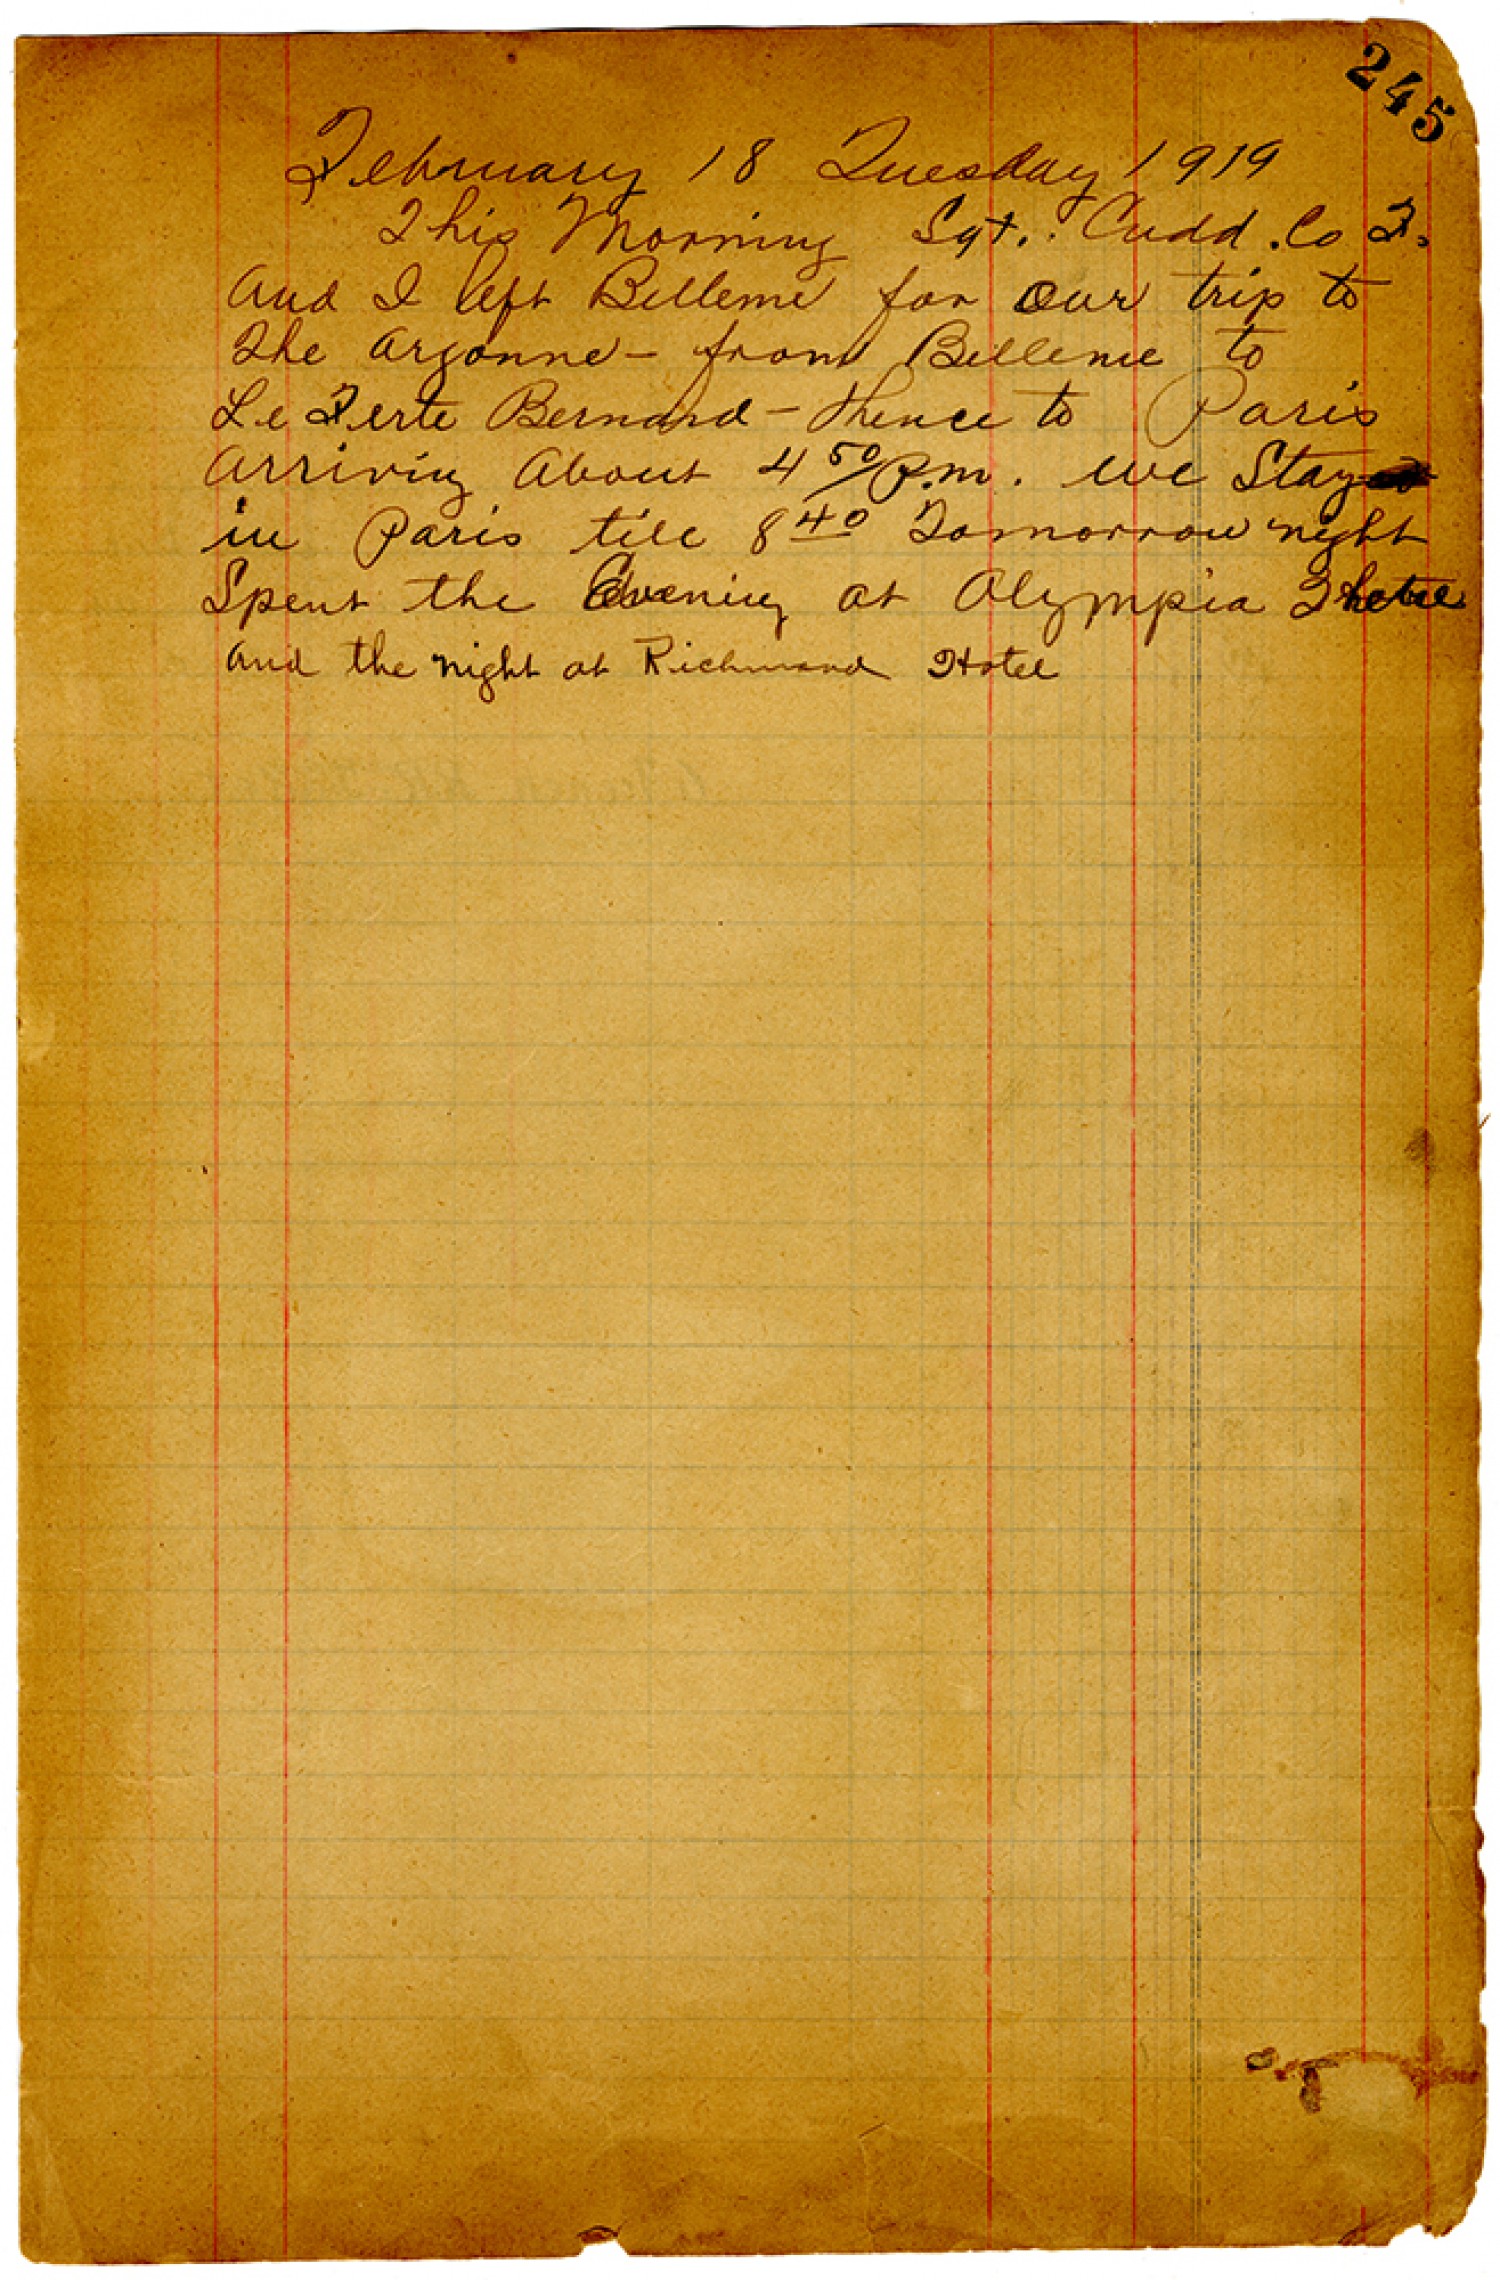 245
February 18 Tuesday 1919
This Morning Sgt. Cudd. Co F.
and I left Belleme for our trip to
The Argonne - from Belleme to
Le Ferte Bernard - thence to Paris
arriving about 4 50/P.m. we Stay
in Paris till 8 40 Tomorrow night
Spent the Evening at Olympia
and the night at Richmond Hotel